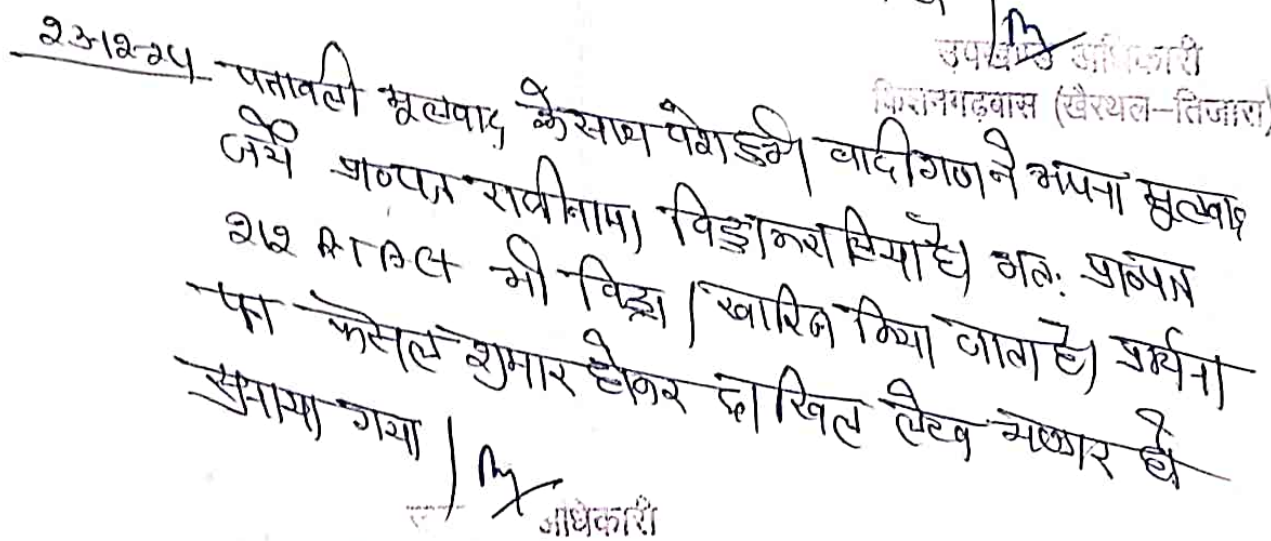 उपखण्ड अधिकारी
किशनगढ़बास (खैरथल-तिजारा)
पत्रावली मूलवाद के साथ पेश हुई। वादीगण ने अपना मूलवाद
जर्ये प्रा०पत्र राजीनामा विड्रा कर लिया है। अतः प्रा०पत्र
212 RTACt भी विड्रा / खारिज किया जाता है। प्रार्थना
पत्र फैसल शुमार होकर दाखिल लेख भण्डार हो
सुनाया गया।
अधिकारी